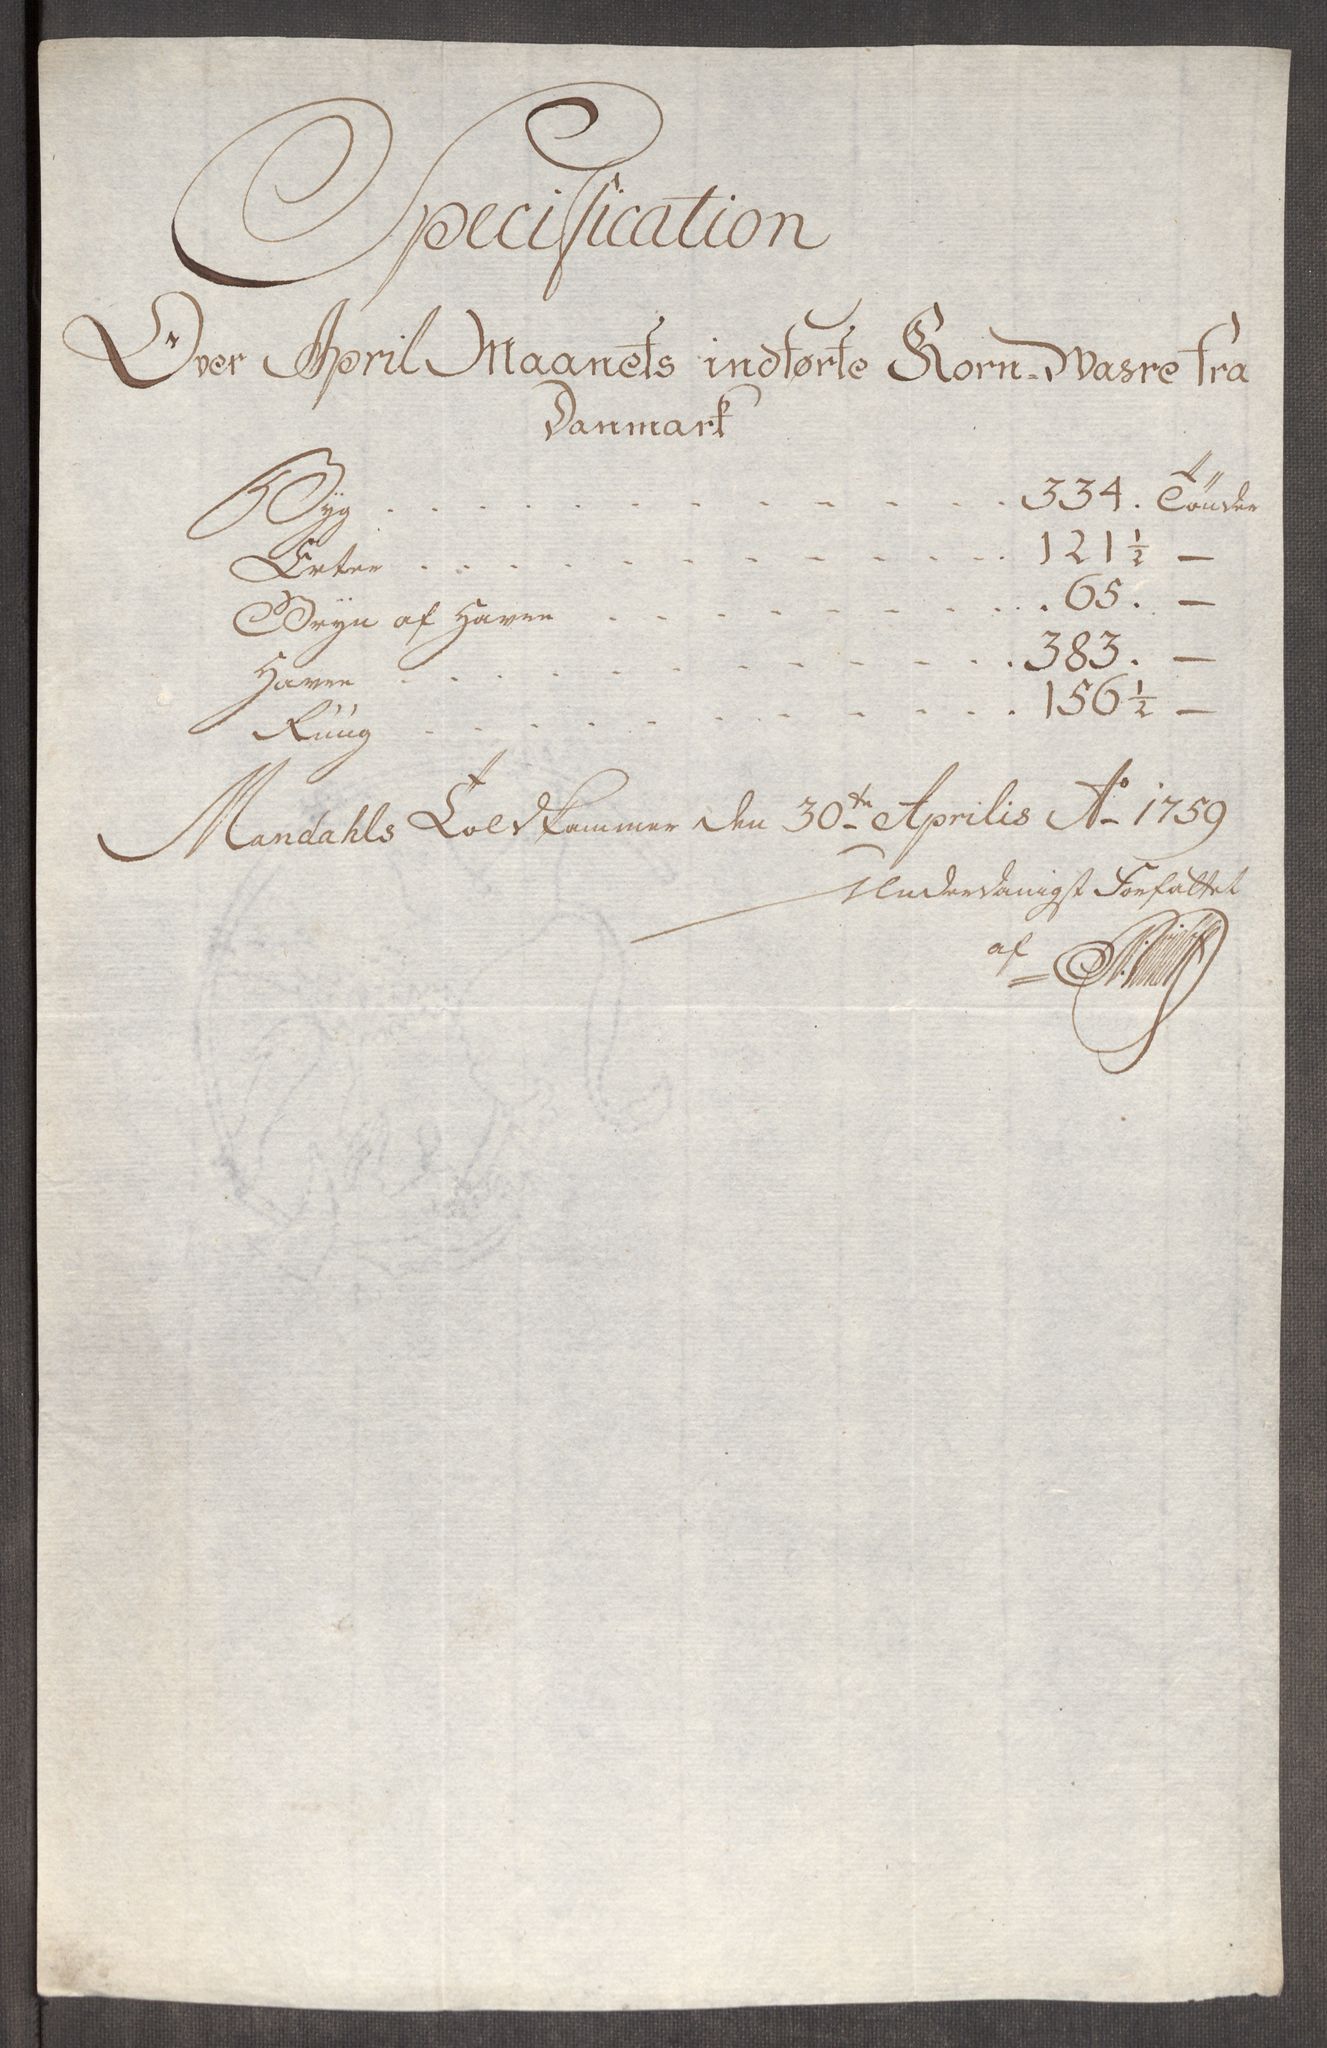 Specification
Over April Maanets indførte Korn-Vasre fra
Danmark
Byg . . . . . . . . . . . 334. Tønder
Erter . . . . . . . . . . . 121 1/2 —
Gryn af Haver . . . . . . . . 65. —
Haver . . . . . . . . . . . 383. —
Rüüg . . . . . . . . . . . 156 1/2 —
Mandahls Toldkammer den 30te Aprilis Ao 1759
Underdanigst Forfattet
af